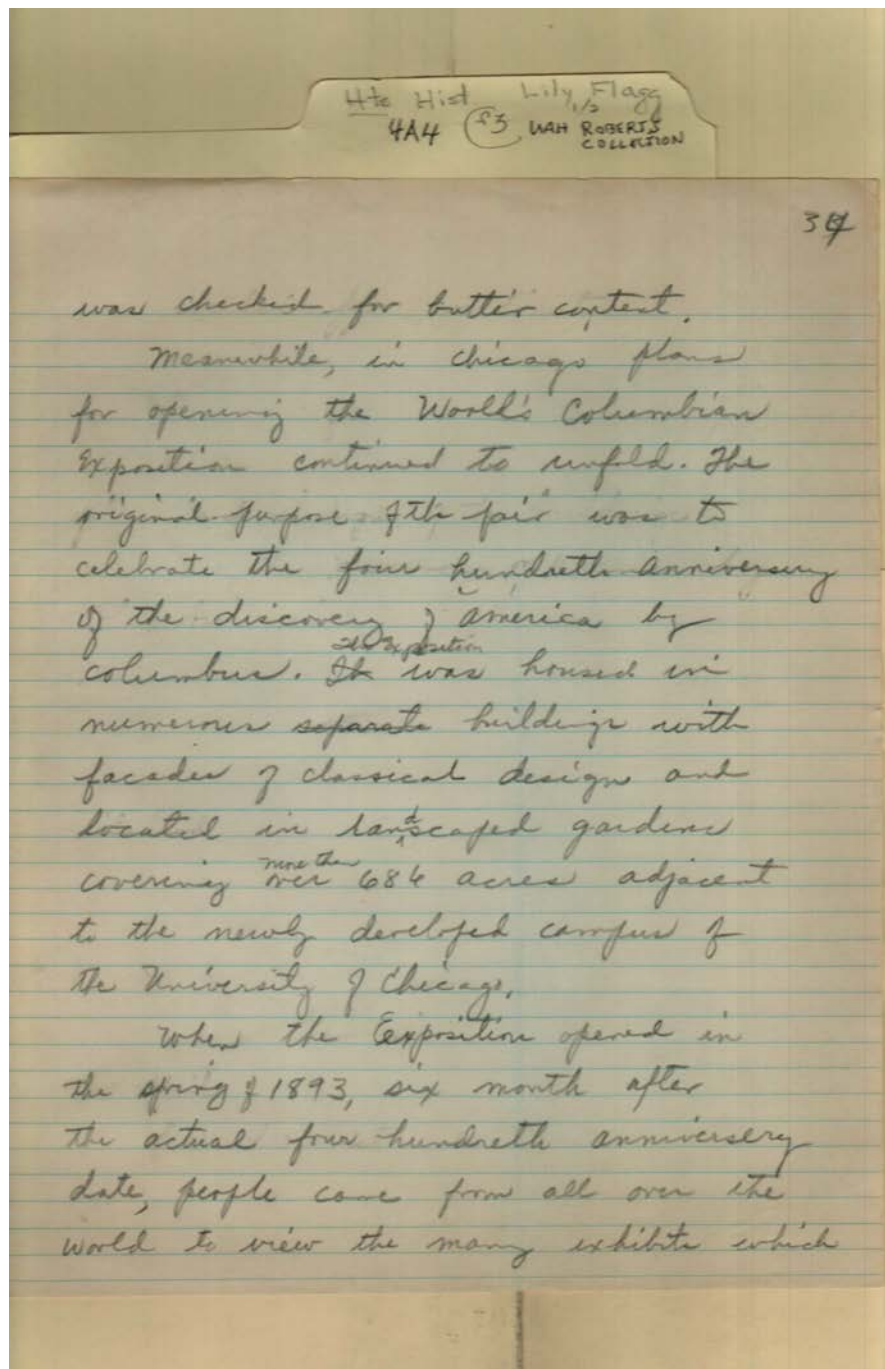 Hts Hist Lily Flagg
1/2
4A4 f3 UAH ROBERTS
COLLECTION
34
was checked for butter content.
Meanwhile, in Chicago plans
for opening the World's Columbian
Exposition continued to unfold. The
original purpose of the fair was to
celebrate the four hundreth anniversary
of the discovery of America by
The Exposition
columbus. It was housed in
numerous separate buildings with
facades of classical design and
located in landscaped gardens
more than
covering over 686 acres adjacent
to the newly developed campus of
the University of Chicago.
When the Exposition opened in
the spring of 1893, six month after
the actual four hundreth anniversery
date, people came from all over the
world to view the many exhibits which